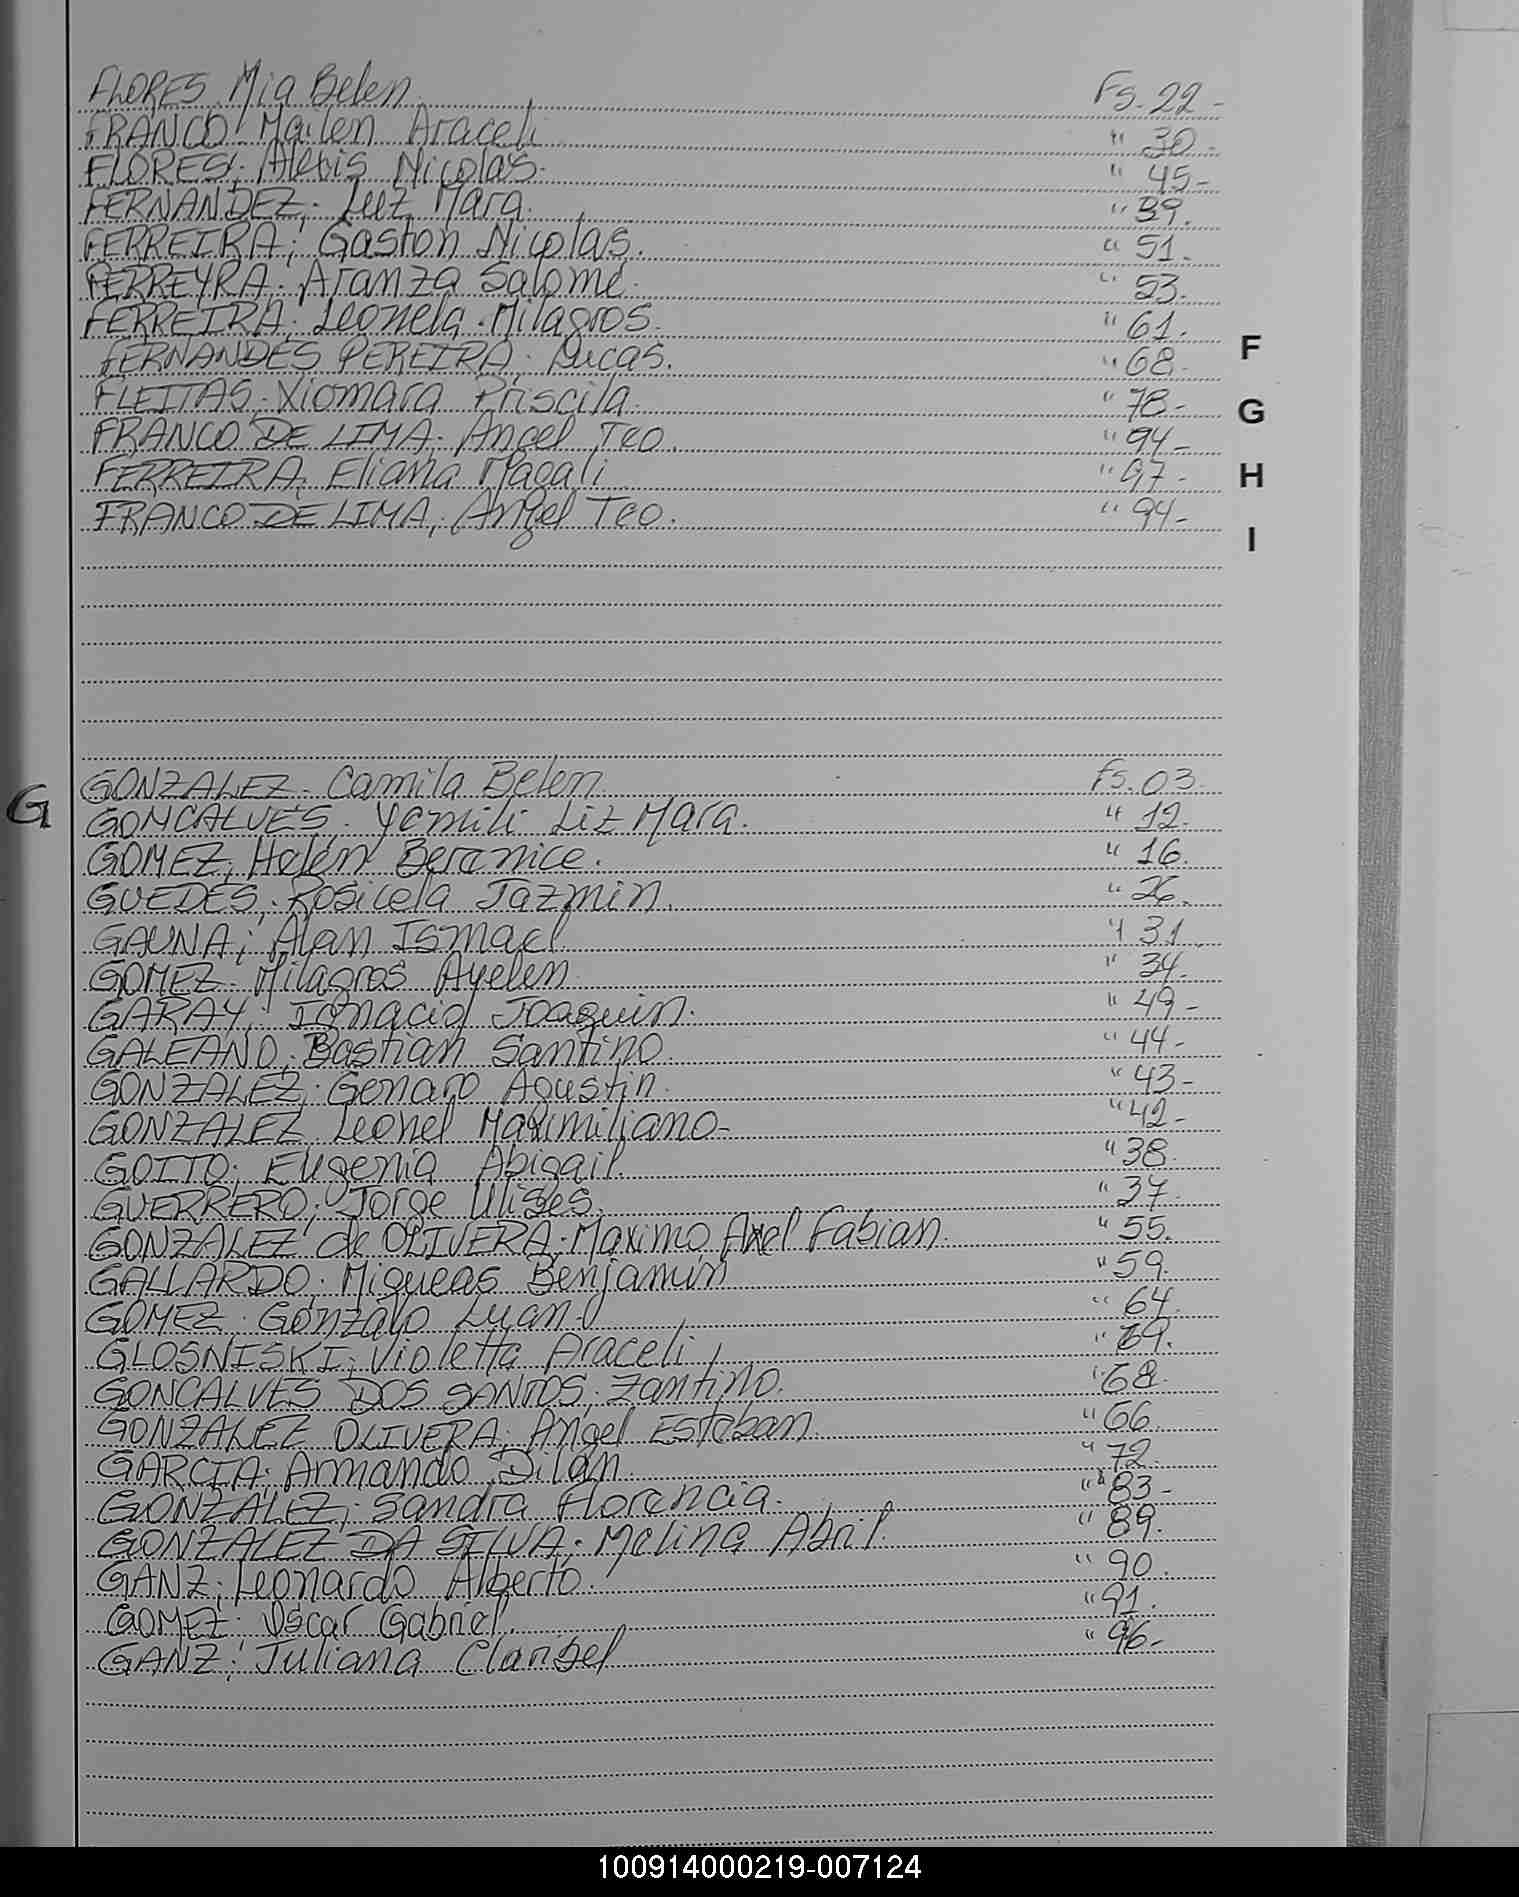 FLORES, Mia Belen. Fs. 22 -
FRANCO. Mailen Araceli " 30 -
FLORES; Alexis Nicolas. " 45 -
FERNANDEZ; Luz Mara. " 39.
FERREIRA; Gaston Nicolas. " 51.
FERREYRA. Aranza Salomé. " 53.
FERREIRA; Leonela Milagros. " 61.
FERNANDES PEREIRA; Lucas. " 68.
FLEITAS; Xiomara Priscila. " 78 -
FRANCO DE LIMA; Angel Teo. " 94 -
FERREIRA, Eliana Magali " 97 -
FRANCO DE LIMA; Angel Teo. " 94 -
F
G
H
I
G
GONZALEZ. Camila Belen Fs. 03.
GONCALVES. Yemili Liz Mara. " 12.
GOMEZ; Helen Berenice. " 16.
GUEDES; Rosicela Jazmin. " 26.
GAUNA; Alan Ismael " 31.
GOMEZ. Milagros Ayelen. " 34.
GARAY; Ignacio Joaquin. " 49 -
GALEANO; Bastian Santino. " 44 -
GONZALEZ; Genaro Agustin. " 43 -
GONZALEZ Leonel Maximiliano - " 42 -
GOITO; Eugenia Abigail. " 38.
GUERRERO; Jorge Ulises. " 37.
GONZALEZ de OLIVERA; Maximo Axel Fabian. " 55.
GALLARDO; Miqueas Benjamin " 59.
GOMEZ. Gonzalo Luan. " 64.
GLOSNISKI; Violetta Araceli " 69.
GONCALVES DOS SANTOS; Zantino. " 68.
GONZALEZ OLIVERA; Angel Esteban. " 66.
GARCIA; Armando Dilan. " 72.
GONZALEZ; Sandra Florencia. " 83 -
GONZALEZ DA SILVA; Melina Abril. " 89.
GANZ; Leonardo Alberto. " 90.
GOMEZ; Oscar Gabriel. " 91.
GANZ; Juliana Clarisel " 96 -
100914000219-007124